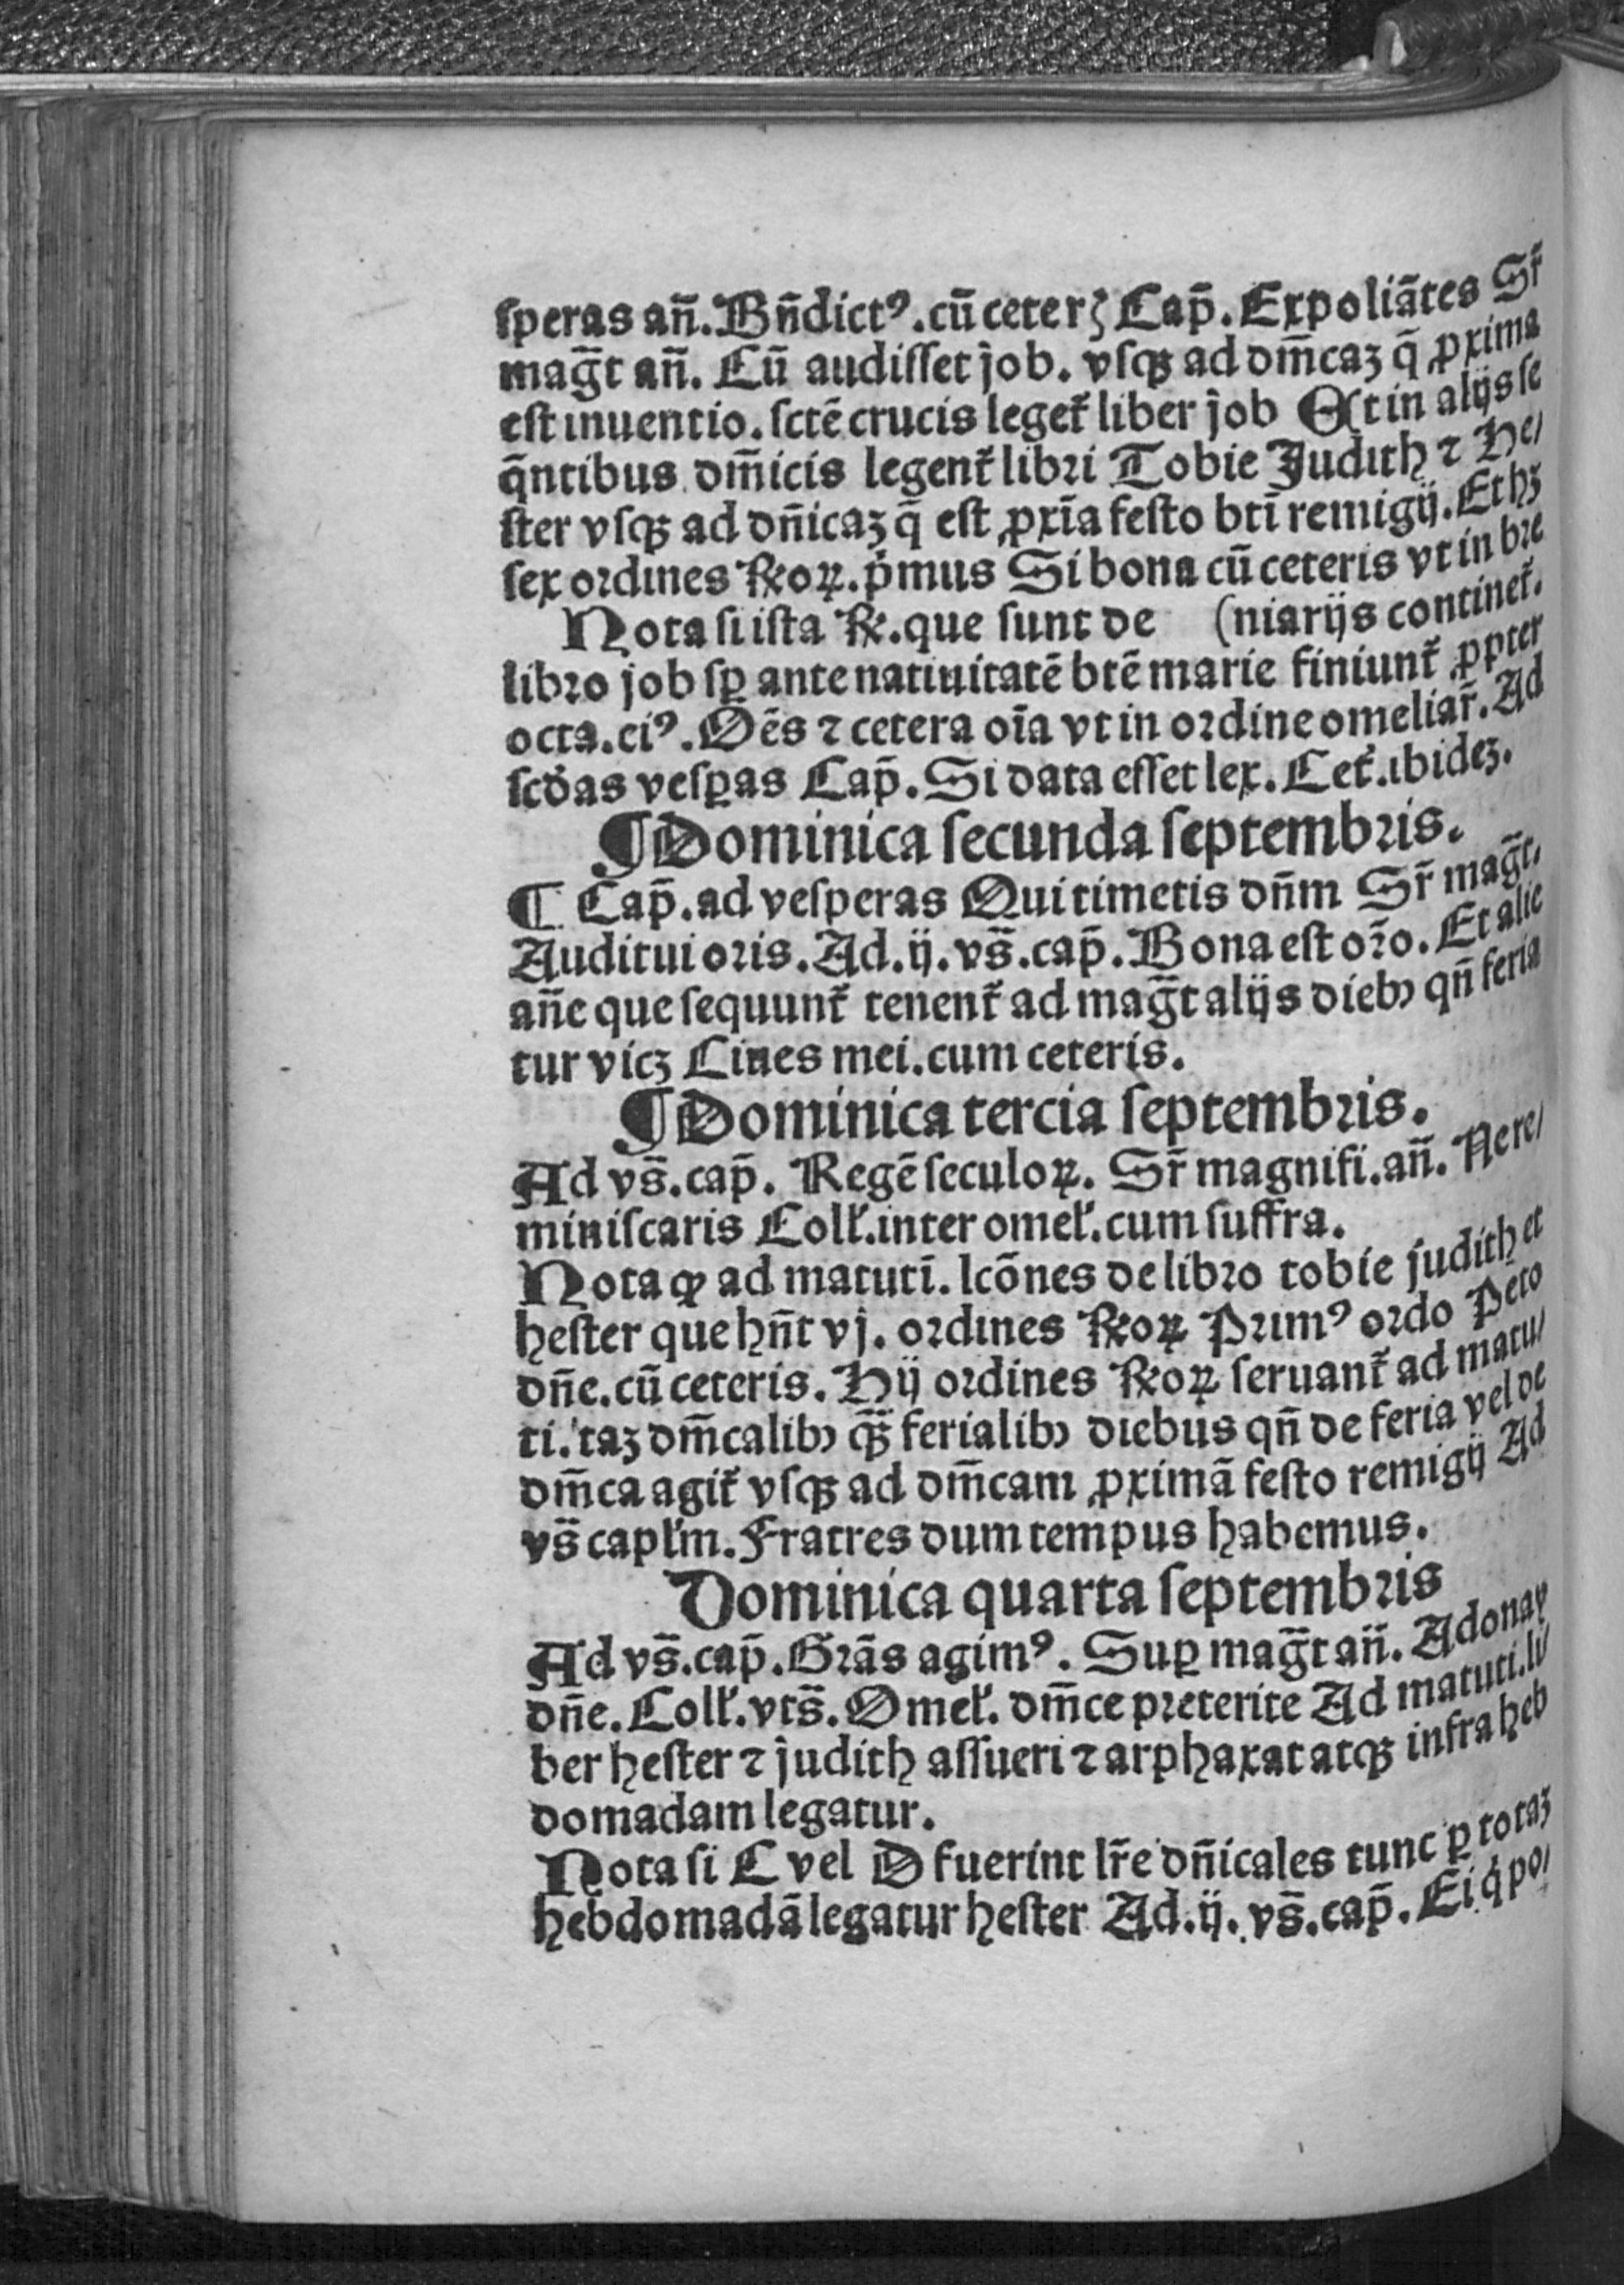 ſperas an̄. Bn̄dictꝰ. cū ceterꝭ Cap̄. Expoliātes Sr̄
mag̅t an̄. Cū audiſſet job. vſqꝫ ad dm̄caꝫ q̄ ꝓxima
eſt inuentio. ſctē crucis leget᷑ liber job Eſt in alijs ſe
q̄ntibus dm̄icis legent᷑ libri Tobie Judith ⁊ He/
ſter vſqꝫ ad dn̄icaꝫ q̄ eſt ꝓxīa feſto btī remigij. Et hꝫ
ſex ordines ℞oꝝ. pͥmus Si bona cū ceteris vt in bre
Nota ſi iſta ℞. que ſunt de (niarijs continet᷑.
libro job ſꝑ ante natiuitatē btē marie finiunt᷑ ꝓpter
octa. eiꝰ. Oēs ⁊ cetera oīa vt in ordine omeliar᷑. Ad
ſcd̄as veſꝑas Cap̄. Si data eſſet lex. Cet᷑. ibideꝫ.
¶ Dominica ſecunda ſeptembris.
¶ Cap̄. ad veſperas Qui timetis dn̄m Sr̄ mag̅t.
Auditui oris. Ad. ij. vs̄. cap̄. Bona eſt or̄o. Et alie
an̄e que ſequunt᷑ tenent᷑ ad mag̅t alijs diebꝰ qn̄ feria
tur vicꝫ Ciues mei. cum ceteris.
¶ Dominica tercia ſeptembris.
Ad vs̄. cap̄. Regē ſeculoꝝ. Sr̄ magnifi. an̄. Ne re/
miniſcaris Coll᷑. inter omel᷑. cum ſuffra.
Nota ꝙ ad matutī. lcōnes de libro tobie judith et
heſter que hn̄t vj. ordines ℞oꝝ Primꝰ ordo Peto
dn̄e. cū ceteris. Hij ordines ℞oꝝ ſeruant᷑ ad matu/
ti. taꝫ dm̄calibꝰ qꝫ̄ ferialibꝰ diebus qn̄ de feria vel de
dm̄ca agit᷑ vſqꝫ ad dm̄cam ꝓximā feſto remigij Ad
vs̄ capl᷑m. Fratres dum tempus habemus.
Dominica quarta ſeptembris
Ad vs̄. cap̄. Grās agimꝰ. Suꝑ mag̅t an̄. Adonay
dn̄e. Coll᷑. vts̄. Omel᷑. dm̄ce preterite Ad matuti. li/
ber heſter ⁊ judith aſſueri ⁊ arphaxat atqꝫ infra heb
domadam legatur.
Nota ſi C vel D fuerint lr̄e dn̄icales tunc ꝑ totaꝫ
hebdomadā legatur heſter Ad. ij. vs̄. cap̄. Ei qͥ po/